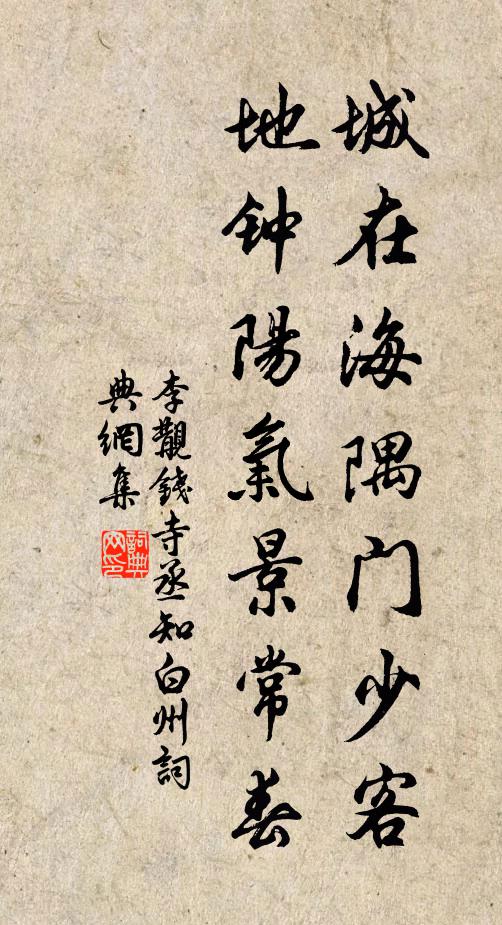 城在海隅門少客
地钟陽氣景常春
李觀錢寺丞知白州詞
典網集
詞典网印